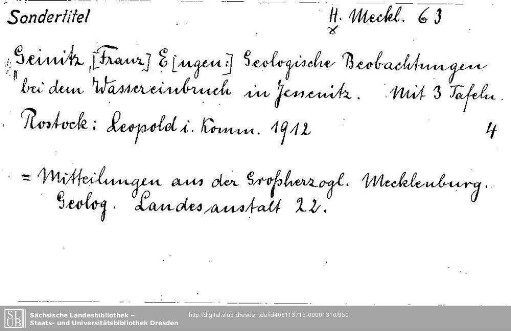 Sondertitel
H. Meckl. 63
Geinitz, [Franz] E[ugen:] Geologische Beobachtungen
bei dem Wassereinbruch in Jessenitz. Mit 3 Tafeln.
Rostock: Leopold i. Komm. 1912
4
= Mitteilungen aus der Großherzogl. Mecklenburg.
Geolog. Landesanstalt 22.
SLUB
Sächsische Landesbibliothek –
Staats- und Universitätsbibliothek Dresden